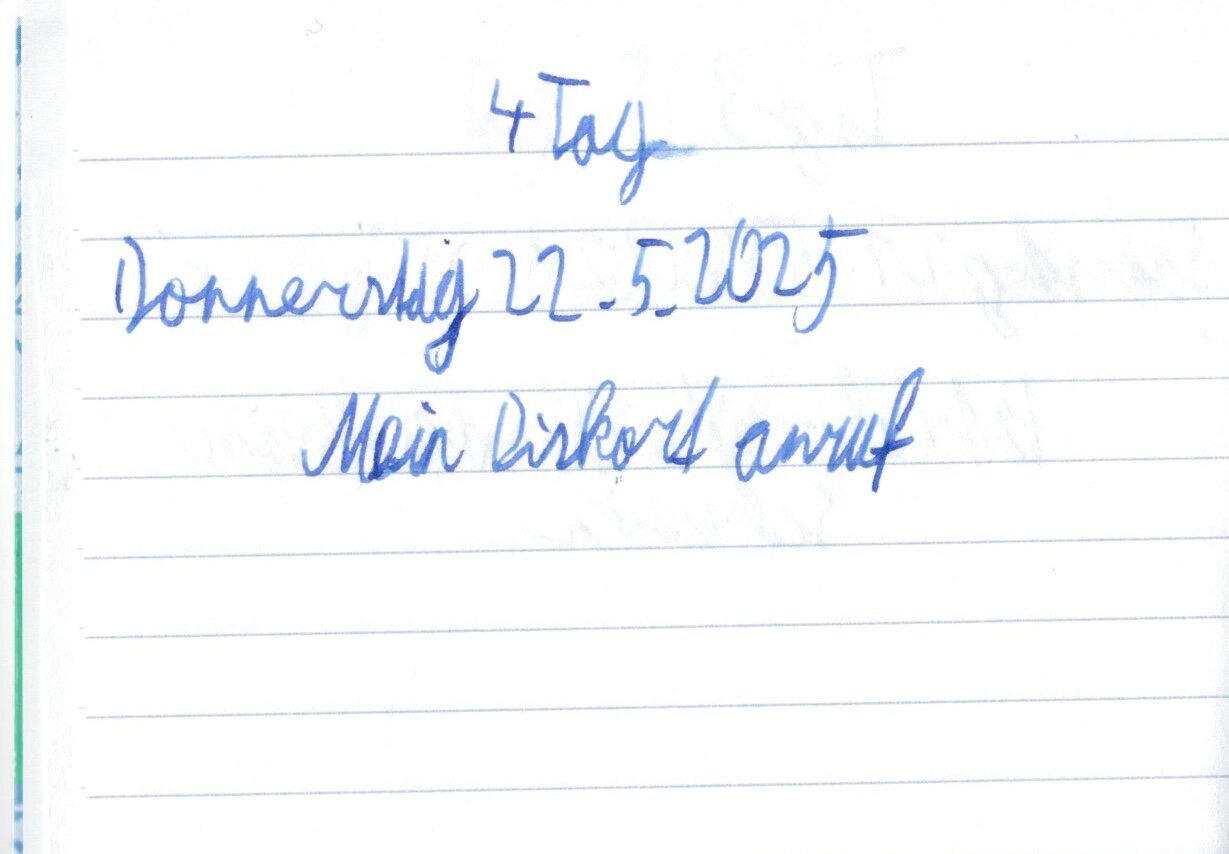 4 Tag
Donnerstag 22.5.2025
Mein Diskord anruf